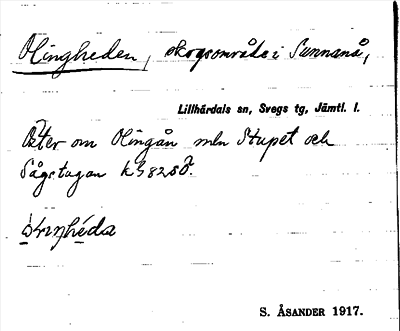 Olingheden, skogsområde i Sunnanå,
Lillhärdals sn, Svegs tg, Jämtl. l.
Öster om Olingån mln Stupet och
Sågstugan
S. ÅSANDER 1917.